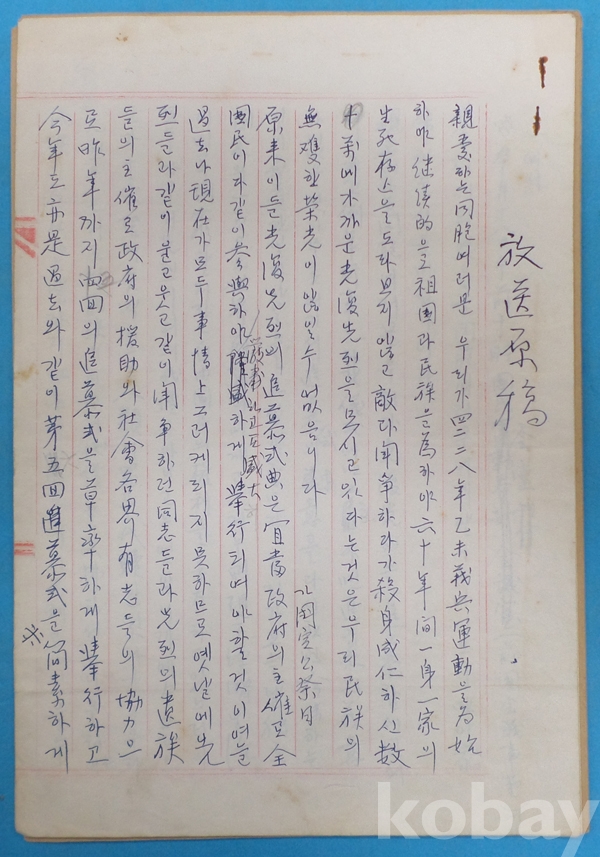 放送原稿
親愛하는 同胞 여러분 우리가 四二二八年 乙未義兵運動을 爲始
하야 継続的으로 祖国과 民族을 爲하야 六十年間 一身一家의
生死存亡을 도라보지 않고 敵과 闘爭하다가 殺身成仁하신 数
十萬에 가까운 光復先烈을 모시고 있다는 것은 우리 民族의
無雙한 榮光이 않일 수 없읍니다
原来 이 들 光復先烈의 追慕式典은 宜當 政府의 主催로 全
国民이 다 같이 参與하야 擧行되여야 할 것이여늘
嚴肅하고도 盛大
過去나 現在가 모두 事情上 그러케 되지 못하므로 옛날에 先
烈들과 같이 울고 웃고 같이 闘争하던 同志들과 先烈의 遺族
들의 主催로 政府의 援助와 社會各界 有志들의 協力으
로 昨年까지 四回의 追慕式을 草率하게 擧行하고
今年도 亦是 過去와 같이 第五回 追慕式을 简素하게
kobay